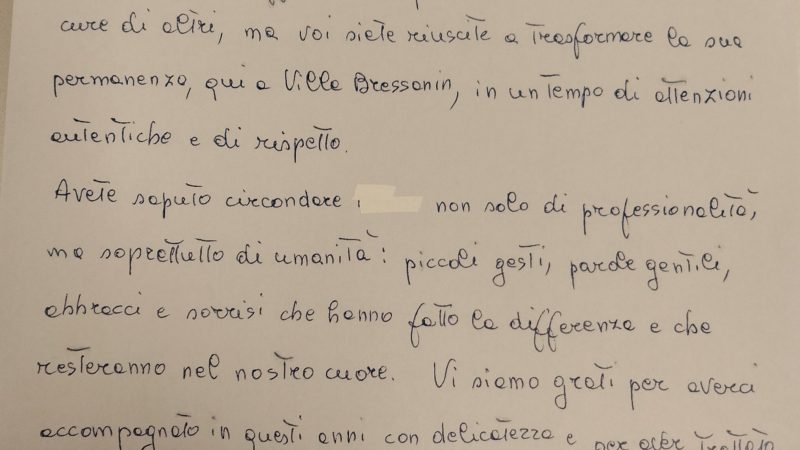 cure di altri, ma voi siete riuscite a trasformare la sua
permanenza, qui a Villa Bressanin, in un tempo di attenzioni
autentiche e di rispetto.
Avete saputo circondare non solo di professionalità,
ma soprattutto di umanità: piccoli gesti, parole gentili,
abbracci e sorrisi che hanno fatto la differenza e che
resteranno nel nostro cuore. Vi siamo grati per averci
accompagnato in questi anni con delicatezza e per aver trattato